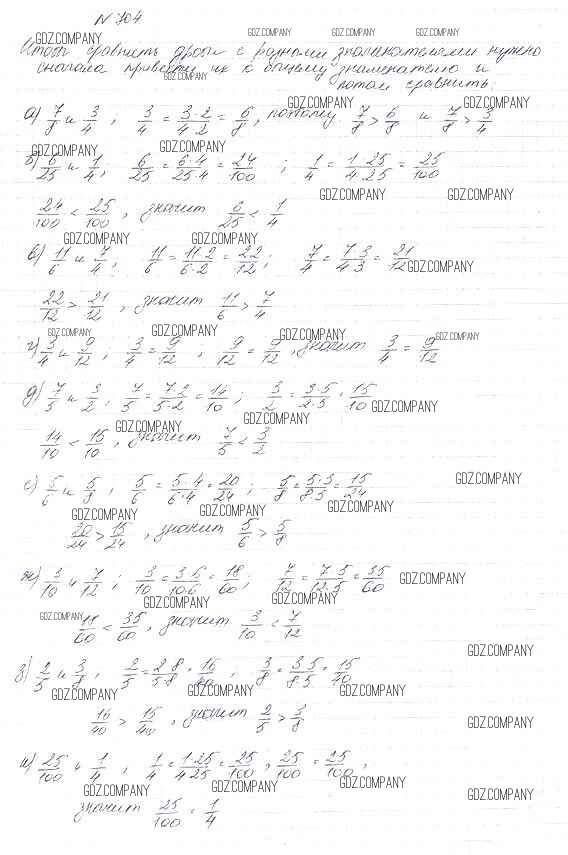 N 704
GDZ.COMPANY GDZ.COMPANY GDZ.COMPANY GDZ.COMPANY
Чтобы сравнить дроби с разными знаменателями нужно
сначала привести их к общему знаменателю и
GDZ.COMPANY
потом сравнить.
GDZ.COMPANY GDZ.COMPANY
а) 7/8 и 3/4, 3/4 = 3·2/4·2 = 6/8, поэтому 7/8 > 6/8 и 7/8 > 3/4
GDZ.COMPANY GDZ.COMPANY
б) 6/25 и 1/4, 6/25 = 6·4/25·4 = 24/100; 1/4 = 1·25/4·25 = 25/100
GDZ.COMPANY GDZ.COMPANY
24/100 < 25/100, значит 6/25 < 1/4
GDZ.COMPANY GDZ.COMPANY
в) 11/6 и 7/4; 11/6 = 11·2/6·2 = 22/12; 7/4 = 7·3/4·3 = 21/12
GDZ.COMPANY
22/12 > 21/12, значит 11/6 > 7/4
GDZ.COMPANY GDZ.COMPANY GDZ.COMPANY GDZ.COMPANY
г) 3/4 и 9/12; 3/4 = 9/12, 9/12 = 9/12, значит 3/4 = 9/12
д) 7/5 и 3/2, 7/5 = 7·2/5·2 = 14/10; 3/2 = 3·5/2·5 = 15/10
GDZ.COMPANY
GDZ.COMPANY GDZ.COMPANY
14/10 < 15/10, значит 7/5 < 3/2
е) 5/6 и 5/8, 5/6 = 5·4/6·4 = 20/24; 5/8 = 5·3/8·3 = 15/24
GDZ.COMPANY
GDZ.COMPANY GDZ.COMPANY GDZ.COMPANY
20/24 > 15/24, значит 5/6 > 5/8
ж) 3/10 и 7/12; 3/10 = 3·6/10·6 = 18/60; 7/12 = 7·5/12·5 = 35/60
GDZ.COMPANY
GDZ.COMPANY GDZ.COMPANY GDZ.COMPANY
11/60 < 35/60, значит 3/10 < 7/12
GDZ.COMPANY
з) 2/5 и 3/8, 2/5 = 2·8/5·8 = 16/40; 3/8 = 3·5/8·5 = 15/40
GDZ.COMPANY GDZ.COMPANY GDZ.COMPANY
16/40 > 15/40, значит 2/5 > 3/8
GDZ.COMPANY
и) 25/100 и 1/4, 1/4 = 1·25/4·25 = 25/100, 25/100 = 25/100,
GDZ.COMPANY GDZ.COMPANY GDZ.COMPANY GDZ.COMPANY
значит 25/100 = 1/4